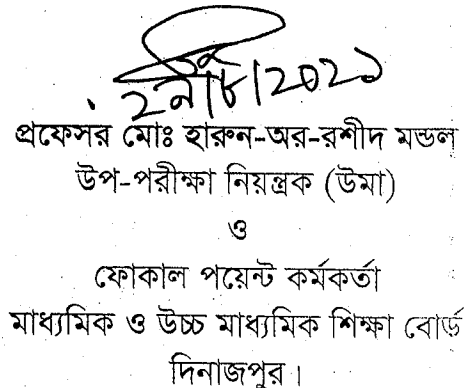 প্রফেসর মোঃ হারুন-অর-রশীদ মন্ডল
উপ-পরীক্ষা নিয়ন্ত্রক (উমা)
ও
ফোকাল পয়েন্ট কর্মকর্তা
মাধ্যমিক ও উচ্চ মাধ্যমিক শিক্ষা বোর্ড
দিনাজপুর।